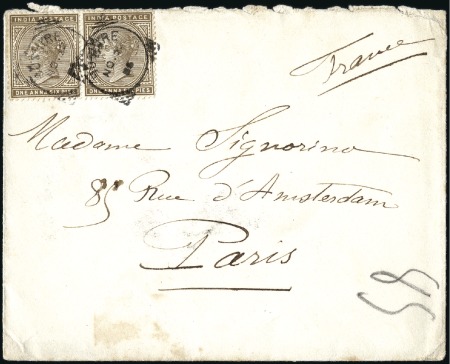 INDIA POSTAGE INDIA POSTAGE
ONE ANNA SIX PIES ONE ANNA SIX PIES
France
Madame Signorino
85 Rue d'Amsterdam
Paris